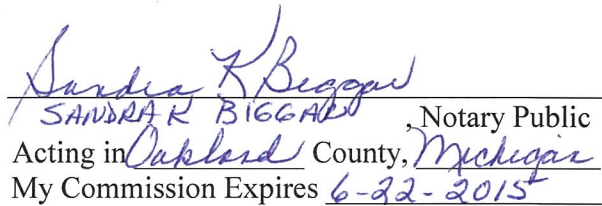 Sandra K Biggar
SANDRA K BIGGAR, Notary Public
Acting in Oakland County, Michigan
My Commission Expires 6-22-2015